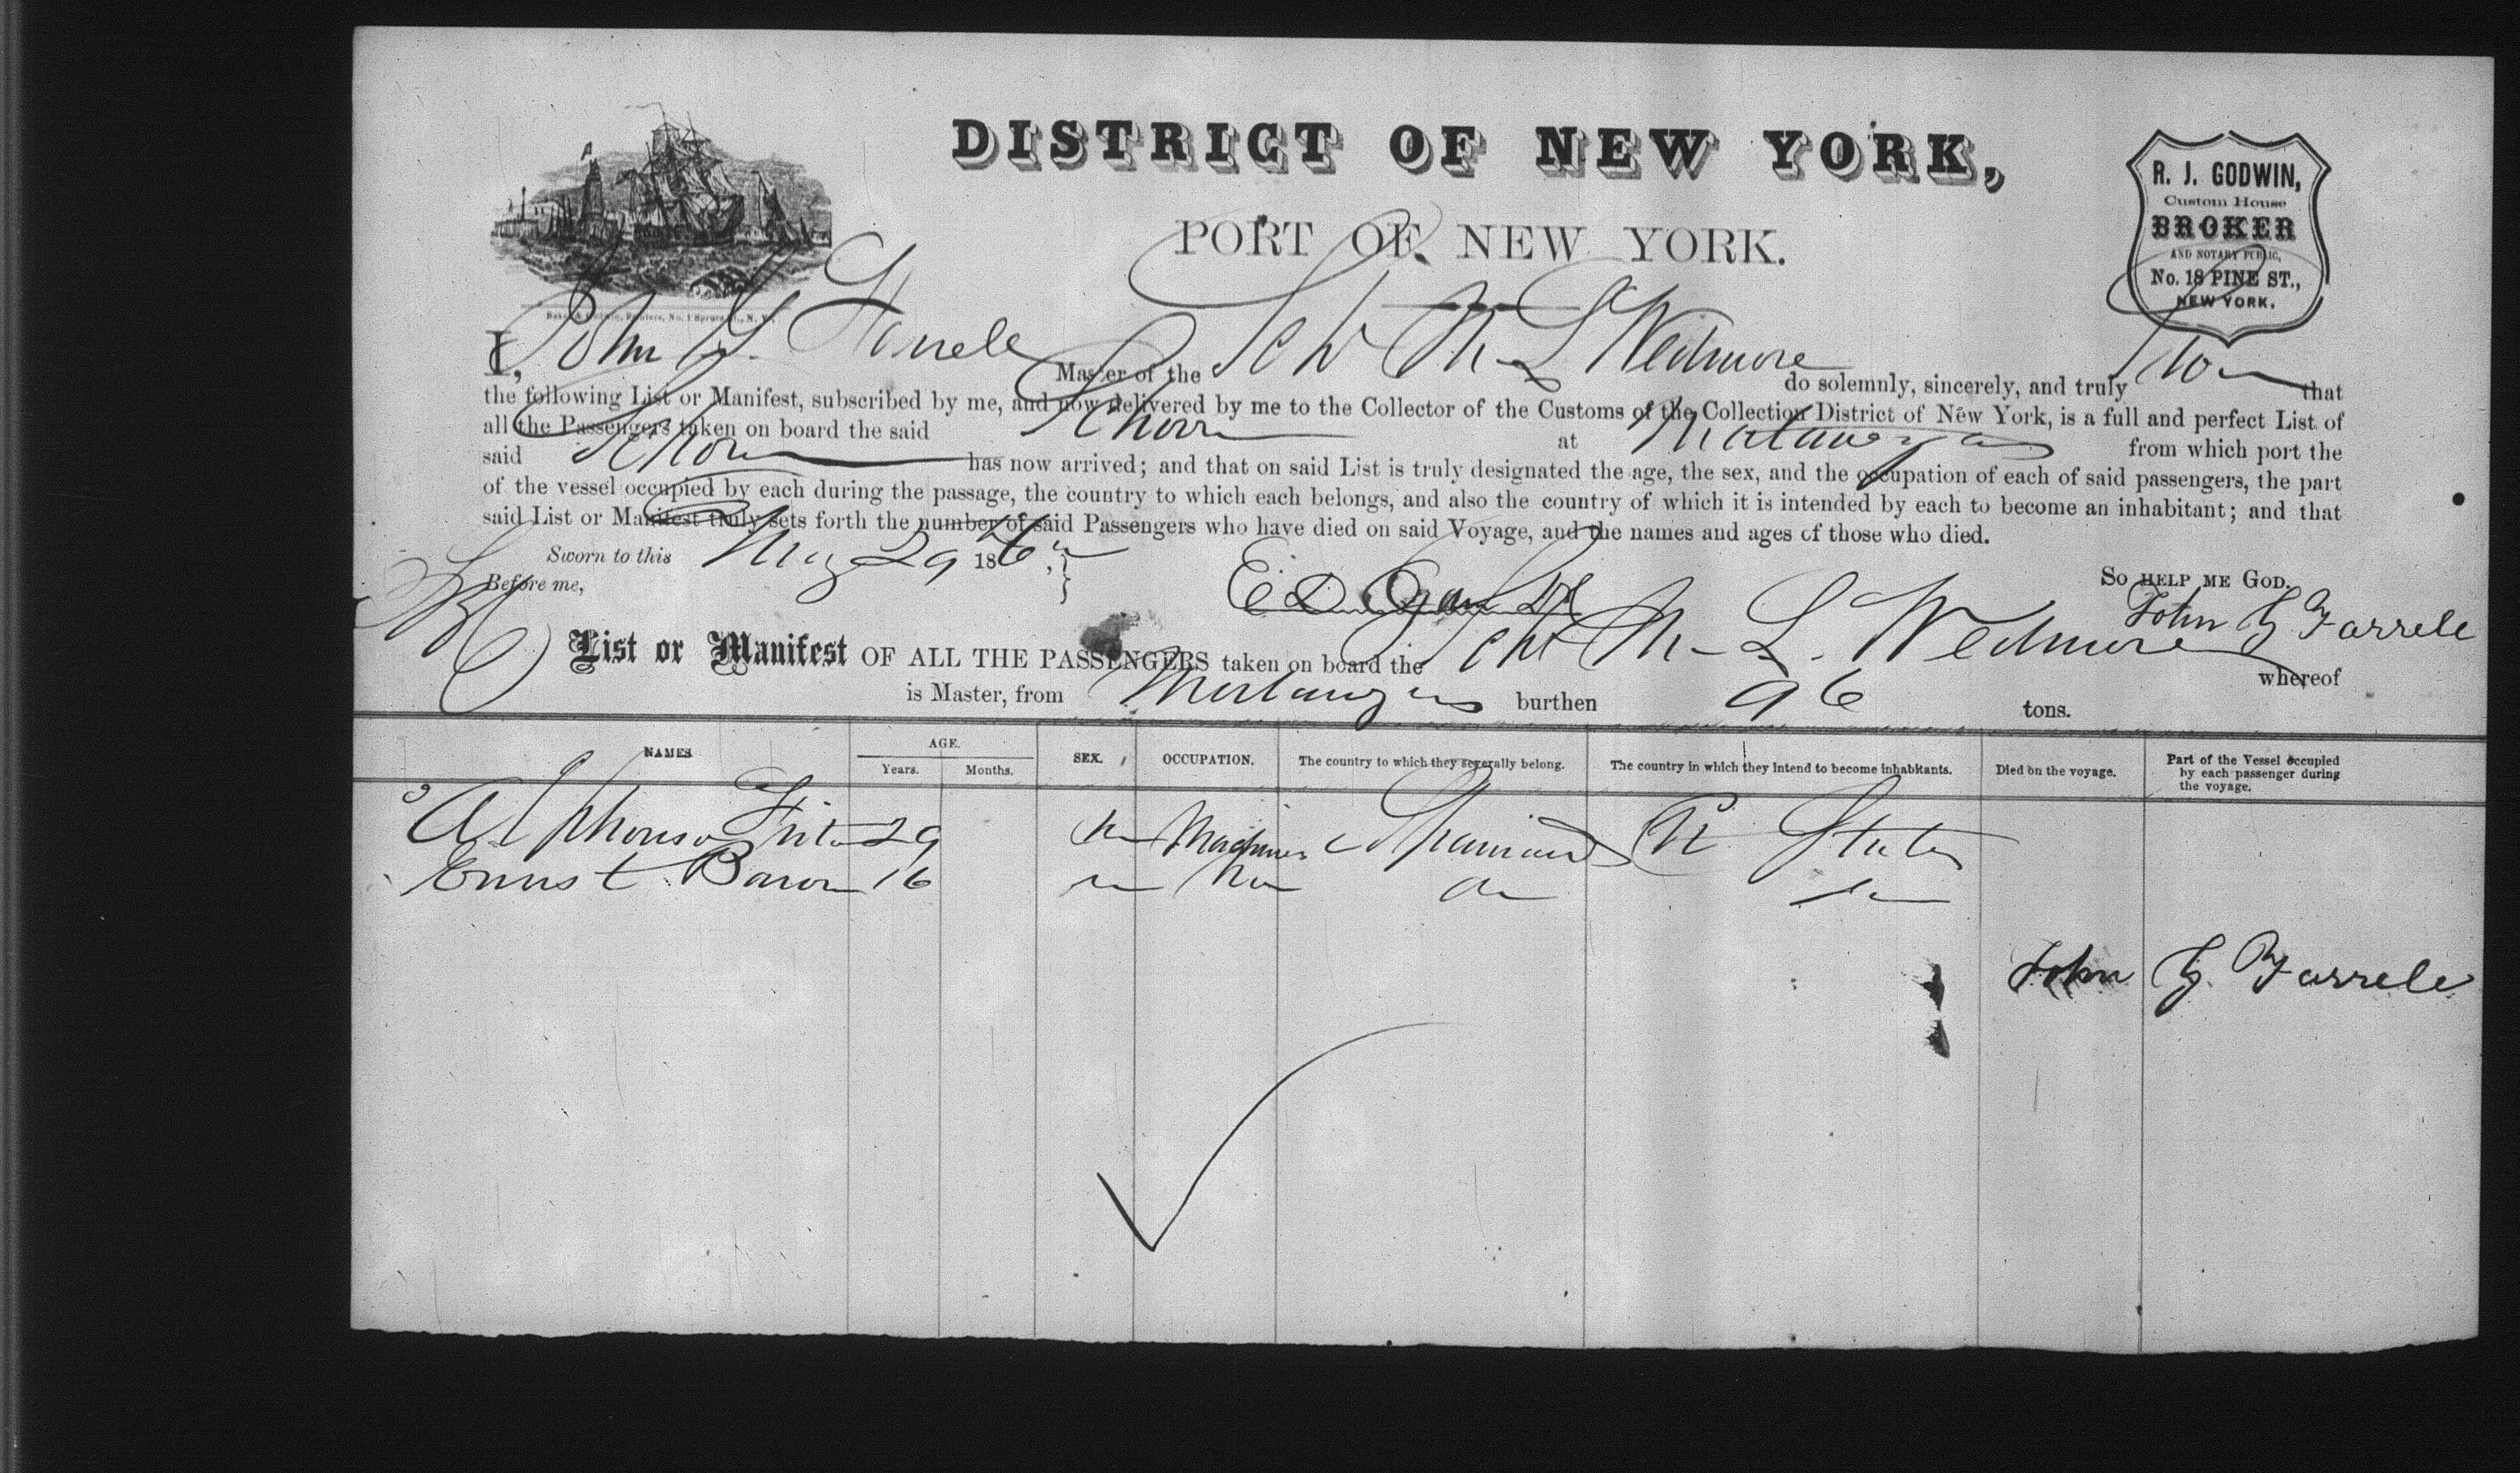 DISTRICT OF NEW YORK,
PORT OF NEW YORK.
R. J. GODWIN,
Custom House
BROKER
AND NOTARY PUBLIC,
No. 18 PINE ST.,
NEW YORK.
Baker & Godwin, Printers, No. 1 Spruce St., N. Y.
I, John G. Farrele Master of the Schr M L Wedmore do solemnly, sincerely, and truly that
the following List or Manifest, subscribed by me, and now delivered by me to the Collector of the Customs of the Collection District of New York, is a full and perfect List of
all the Passengers taken on board the said Schooner at Matanzas from which port the
said Schooner has now arrived; and that on said List is truly designated the age, the sex, and the occupation of each of said passengers, the part
of the vessel occupied by each during the passage, the country to which each belongs, and also the country of which it is intended by each to become an inhabitant; and that
said List or Manifest truly sets forth the number of said Passengers who have died on said Voyage, and the names and ages of those who died.
Sworn to this May 29 186
So HELP ME GOD.
Before me,
John G Farrele
List or Manifest OF ALL THE PASSENGERS taken on board the Schr M. L. Wedmore whereof
is Master, from Matanzas burthen 96 tons.
NAMES AGE. Years. Months. SEX. OCCUPATION. The country to which they severally belong. The country in which they intend to become inhabitants. Died on the voyage. Part of the Vessel occupied by each passenger during the voyage.
Alphonso 29 m Spaniard States
Ernust Baron 16 m
John G. Farrele